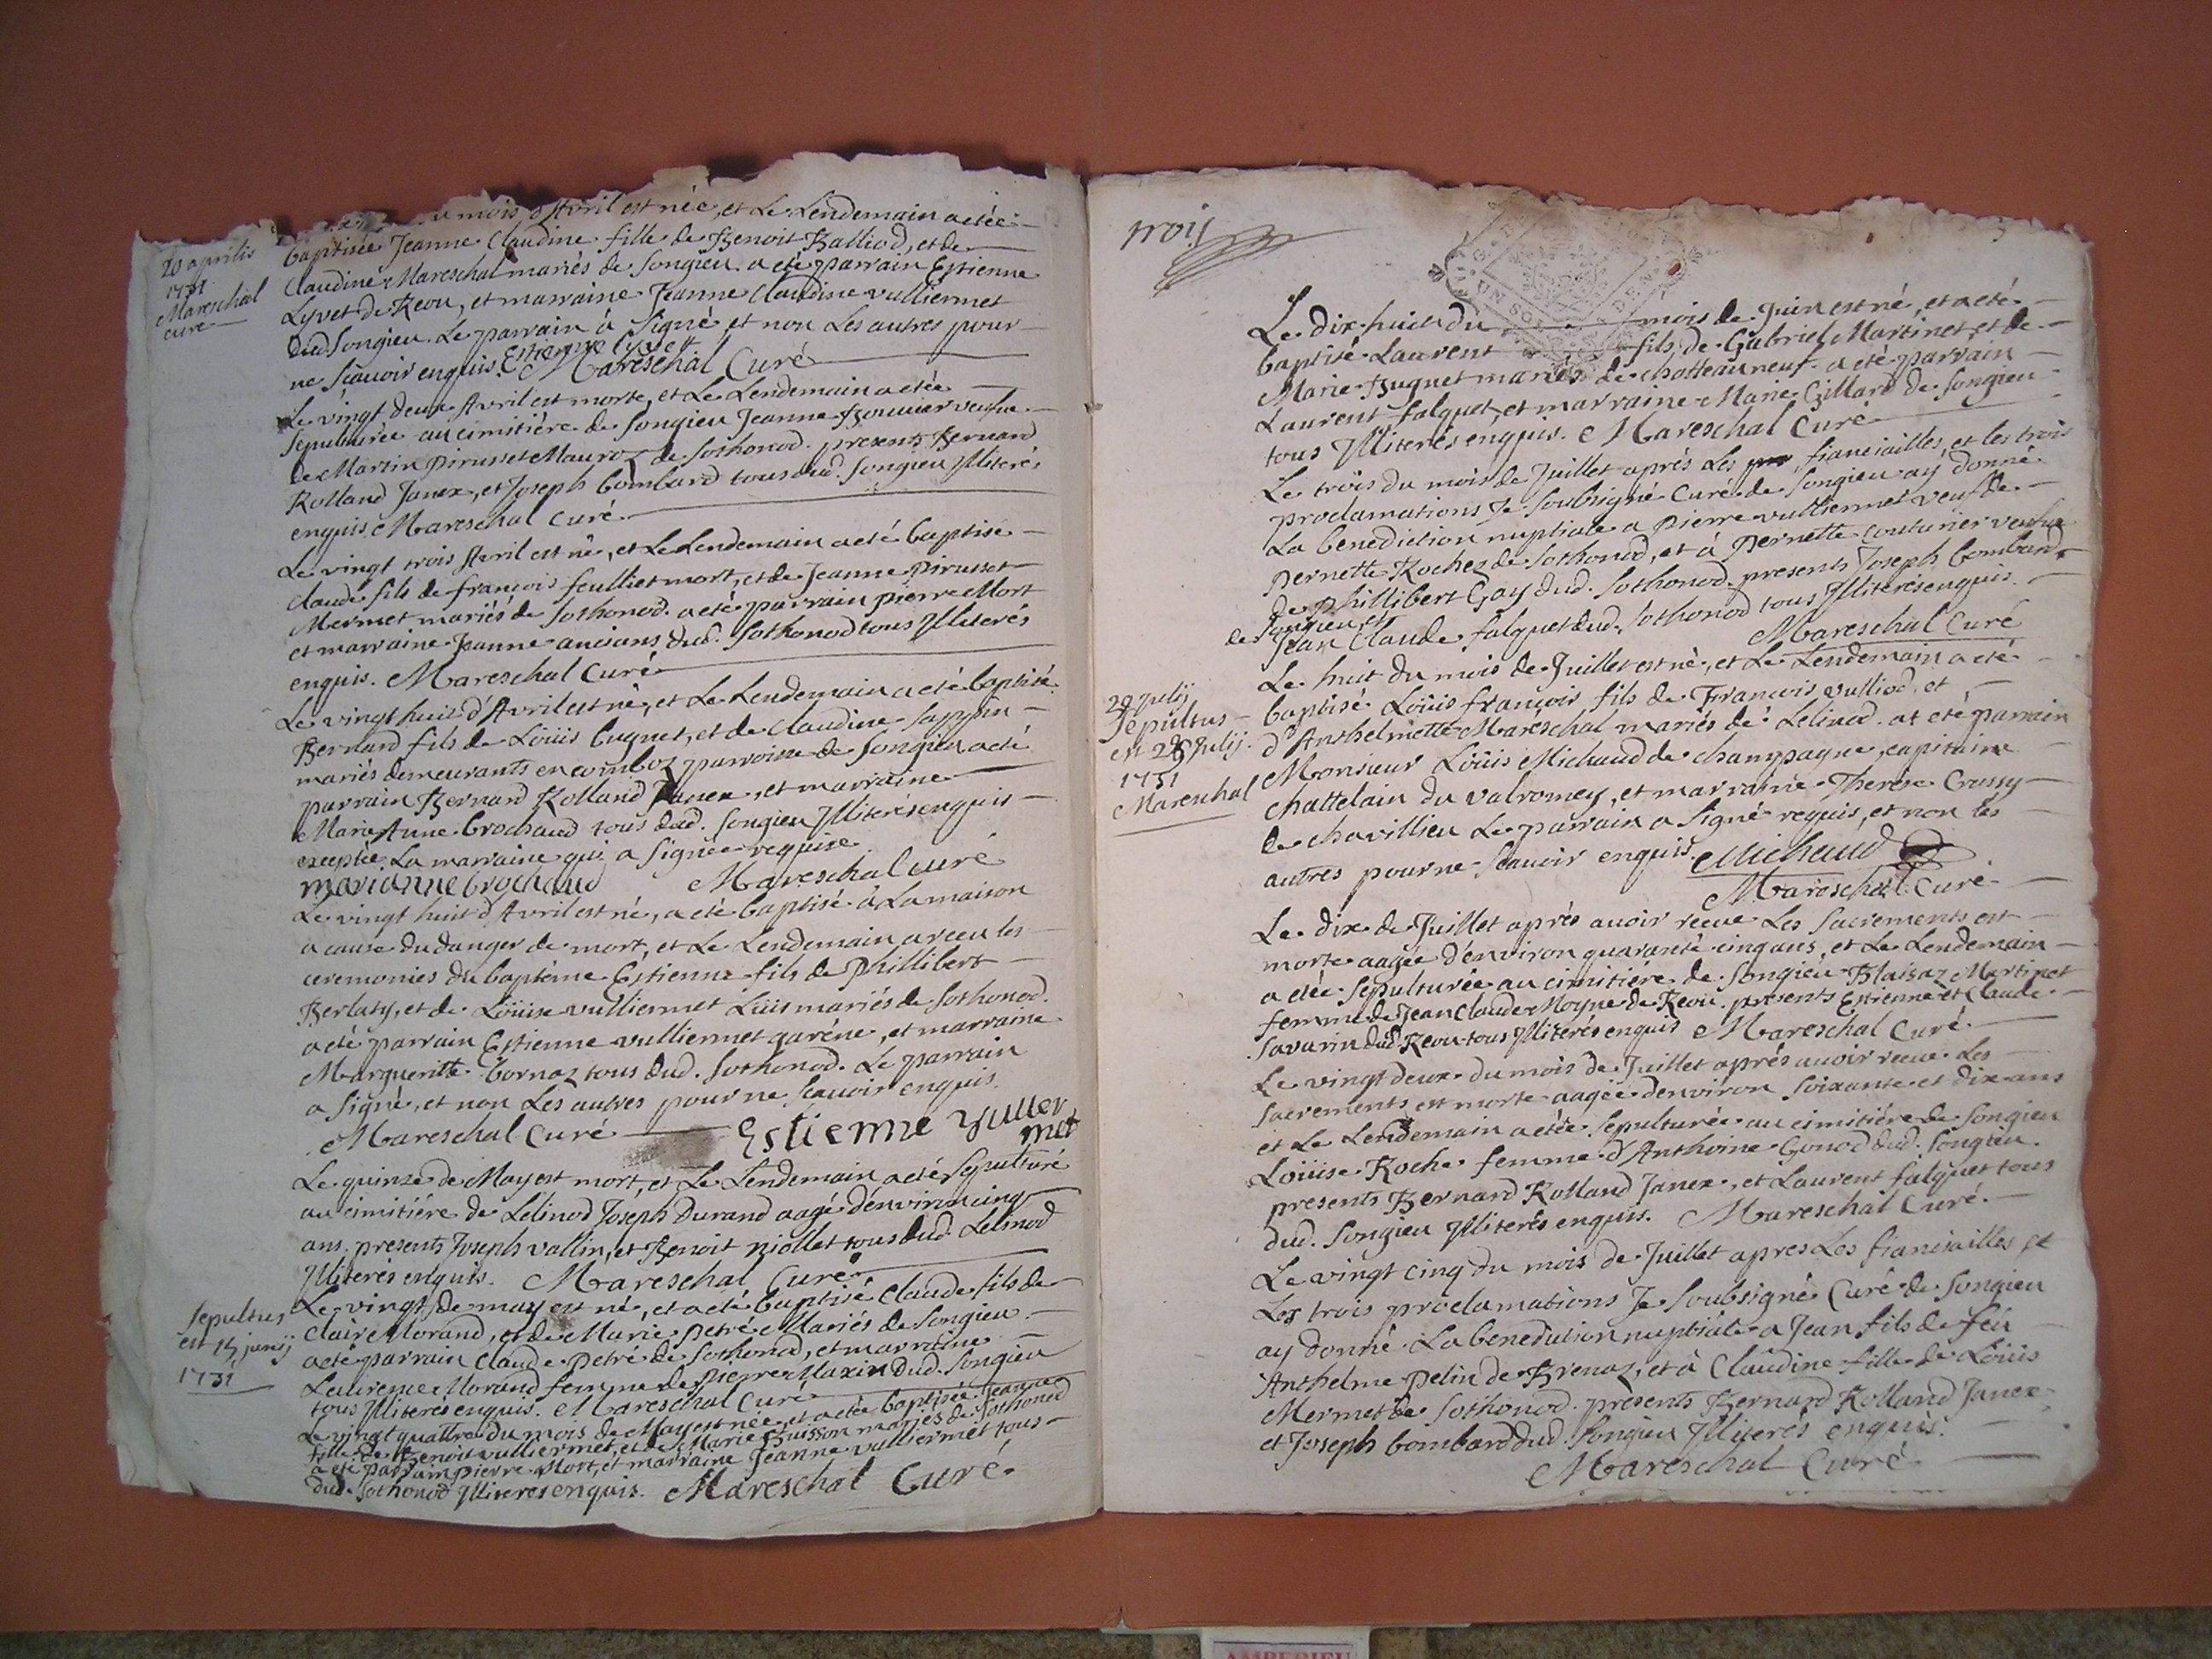 20 aprilis
1731
Mareschal
curé
mois d'Avril est née, et Le Lendemain a etée
baptisée Jeanne Claudine fille de Benoit Balliod, et de
Claudine Mareschal mariés de Songieu. a eté parrain Estienne
Lyvet de Reou, et marraine Jeanne Claudine vulliermet
dud Songieu. Le parrain à Signé et non Les autres pour
ne Scauoir enquis. Estienne lyvet
Mareschal Curé
Le vingt deux Avril est morte, et Le Lendemain a etée
Sepulturée au cimitiére de Songieu Jeanne Bouuier veufue
de Martin Pirusset Mauroz de Sothonod. presents Bernard
Rolland Janex, et Joseph bombard tous dud. Songieu Illiterés
enquis. Mareschal Curé
Le vingt trois Avril est né, et Le Lendemain a eté baptisé
Claude fils de françois feulliet mort, et de Jeanne Pirusset
Mermet mariés de Sothonod. a eté parrain pierre Mort
et marraine Jeanne ancians dud. Sothonod tous Illiterés
enquis. Mareschal Curé
Le vingt huit d'Avril est né, et Le Lendemain a eté baptisé
Bernard fils de Loüis buguet, et de Claudine
mariés demeurants en comboz parroisse de Songieu a eté
parrain Bernard Rolland Janex, et marraine
Marie Anne brochaud tous dud. Songieu Illiteres enquis
exceptée La marraine qui a Signée requise
marianne brochaud Mareschal curé
Le vingt huit d'Avril est né, a eté baptisé à La maison
a cause du danger de mort, et Le Lendemain a receu les
ceremonies du baptême Estienne fils de Phillibert
Berlaty, et de Loüise vulliermet Luis mariés de Sothonod.
a eté parrain Estienne vulliermet garéne, et marraine
Marguerite bornaz tous dud. Sothonod. Le parrain
a Signé, et non Les autres pour ne Scauoir enquis.
Mareschal Curé Estienne vullier
met
Le quinze de May est mort, et Le Lendemain a eté Sepulturé
au cimitiére de Lélinod Joseph Durand aagé d'environ cinq
ans. presents Joseph vallin, et Benoit niollet tous dud. Lelinod
Illiterés enquis. Mareschal Curé
Sepultus
est 15 junij
1731
Le vingt de may est né, et a eté baptisé Claude fils de
Claire Morand, et de Marie petré Mariés de Songieu
a eté parrain Claude petré de Sothonod, et marraine
Laurence Morand femme de pierre Maxin dud. Songieu
tous Illiterés enquis. Mareschal Curé
Le vingt quattre du mois de May est née et a etée baptisée Jeanne
fille de Benoit vulliermet, et de Marie buisson mariés de Sothonod
a eté parrain pierre Mort, et marraine Jeanne vulliermet tous
dud. Sothonod Illiteres enquis. Mareschal Curé
trois
3
UN SOL DEN
Le dix huit du mois de Juin est né, et a eté
baptisé Laurent fils de Gabriel Martinet et de
Marie Buguet mariés de chatteauneuf. a eté parrain
Laurent falquet, et marraine Marie Gillard de Songieu
tous Illiterés enquis. Mareschal Curé
Le trois du mois de Juillet aprés Les fianciailles, et les trois
proclamations Je Soubsigné Curé de Songieu ay donné
La benediction nuptiale a pierre vulliermet veuf de
Pernette Rochez de Sothonod, et à Pernette Couturier veufue
de Phillibert Gay dud. Sothonod. presents Joseph bombard
de Songieu et
Jean Claude falquet dud. Sothonod tous Illiterés enquis.
Mareschal Curé
28 Julij
Sepultus
est 29 Julij.
1731
Mareschal
Le huit du mois de Juillet est né, et Le Lendemain a eté
baptisé Loüis françois fils de François vulliod, et
d'Anthelmette Mareschal mariés de Lelinod. at eté parrain
Monsieur Loüis Michaud de champagne, capitaine
chattelain du valromey, et marraine Therese Crussy
de chavillieu Le parrain a Signé requis, et non les
autres pour ne Scauoir enquis. Michaud
Mareschal. Curé
Le dix de Juillet aprés auoir receu Les Sacrements est
morte aagée d'environ quarante cinq ans, et Le Lendemain
a etée Sepulturée au cimitiére de Songieu Blaisaz Martinet
femme de Jean Claude Moyne de Reou. presents Estienne et Claude
Savarin dud Reou tous Illiterés enquis Mareschal Curé.
Le vingt deux du mois de Juillet aprés auoir receu Les
Sacrements est morte aagée d'environ Soixante et dix ans
et Le Lendemain a etée Sepulturée au cimitiére de Songieu
Loüise Roche femme d'Anthoine Gonod dud. Songieu.
presents Bernard Rolland Janex, et Laurent falquet tous
dud. Songieu Illiterés enquis. Mareschal Curé.
Le vingt cinq du mois de Juillet apres Les fianciailles et
Les trois proclamations Je Soubsigné Curé de Songieu
ay donné La benediction nuptiale a Jean fils de feu
Anthelme pelin de Brenaz, et à Claudine fille de Loüis
Mermet de Sothonod. presents Bernard Rolland Janex
et Joseph bombard dud. Songieu Illiterés enquis.
Mareschal Curé
AMBERIEU